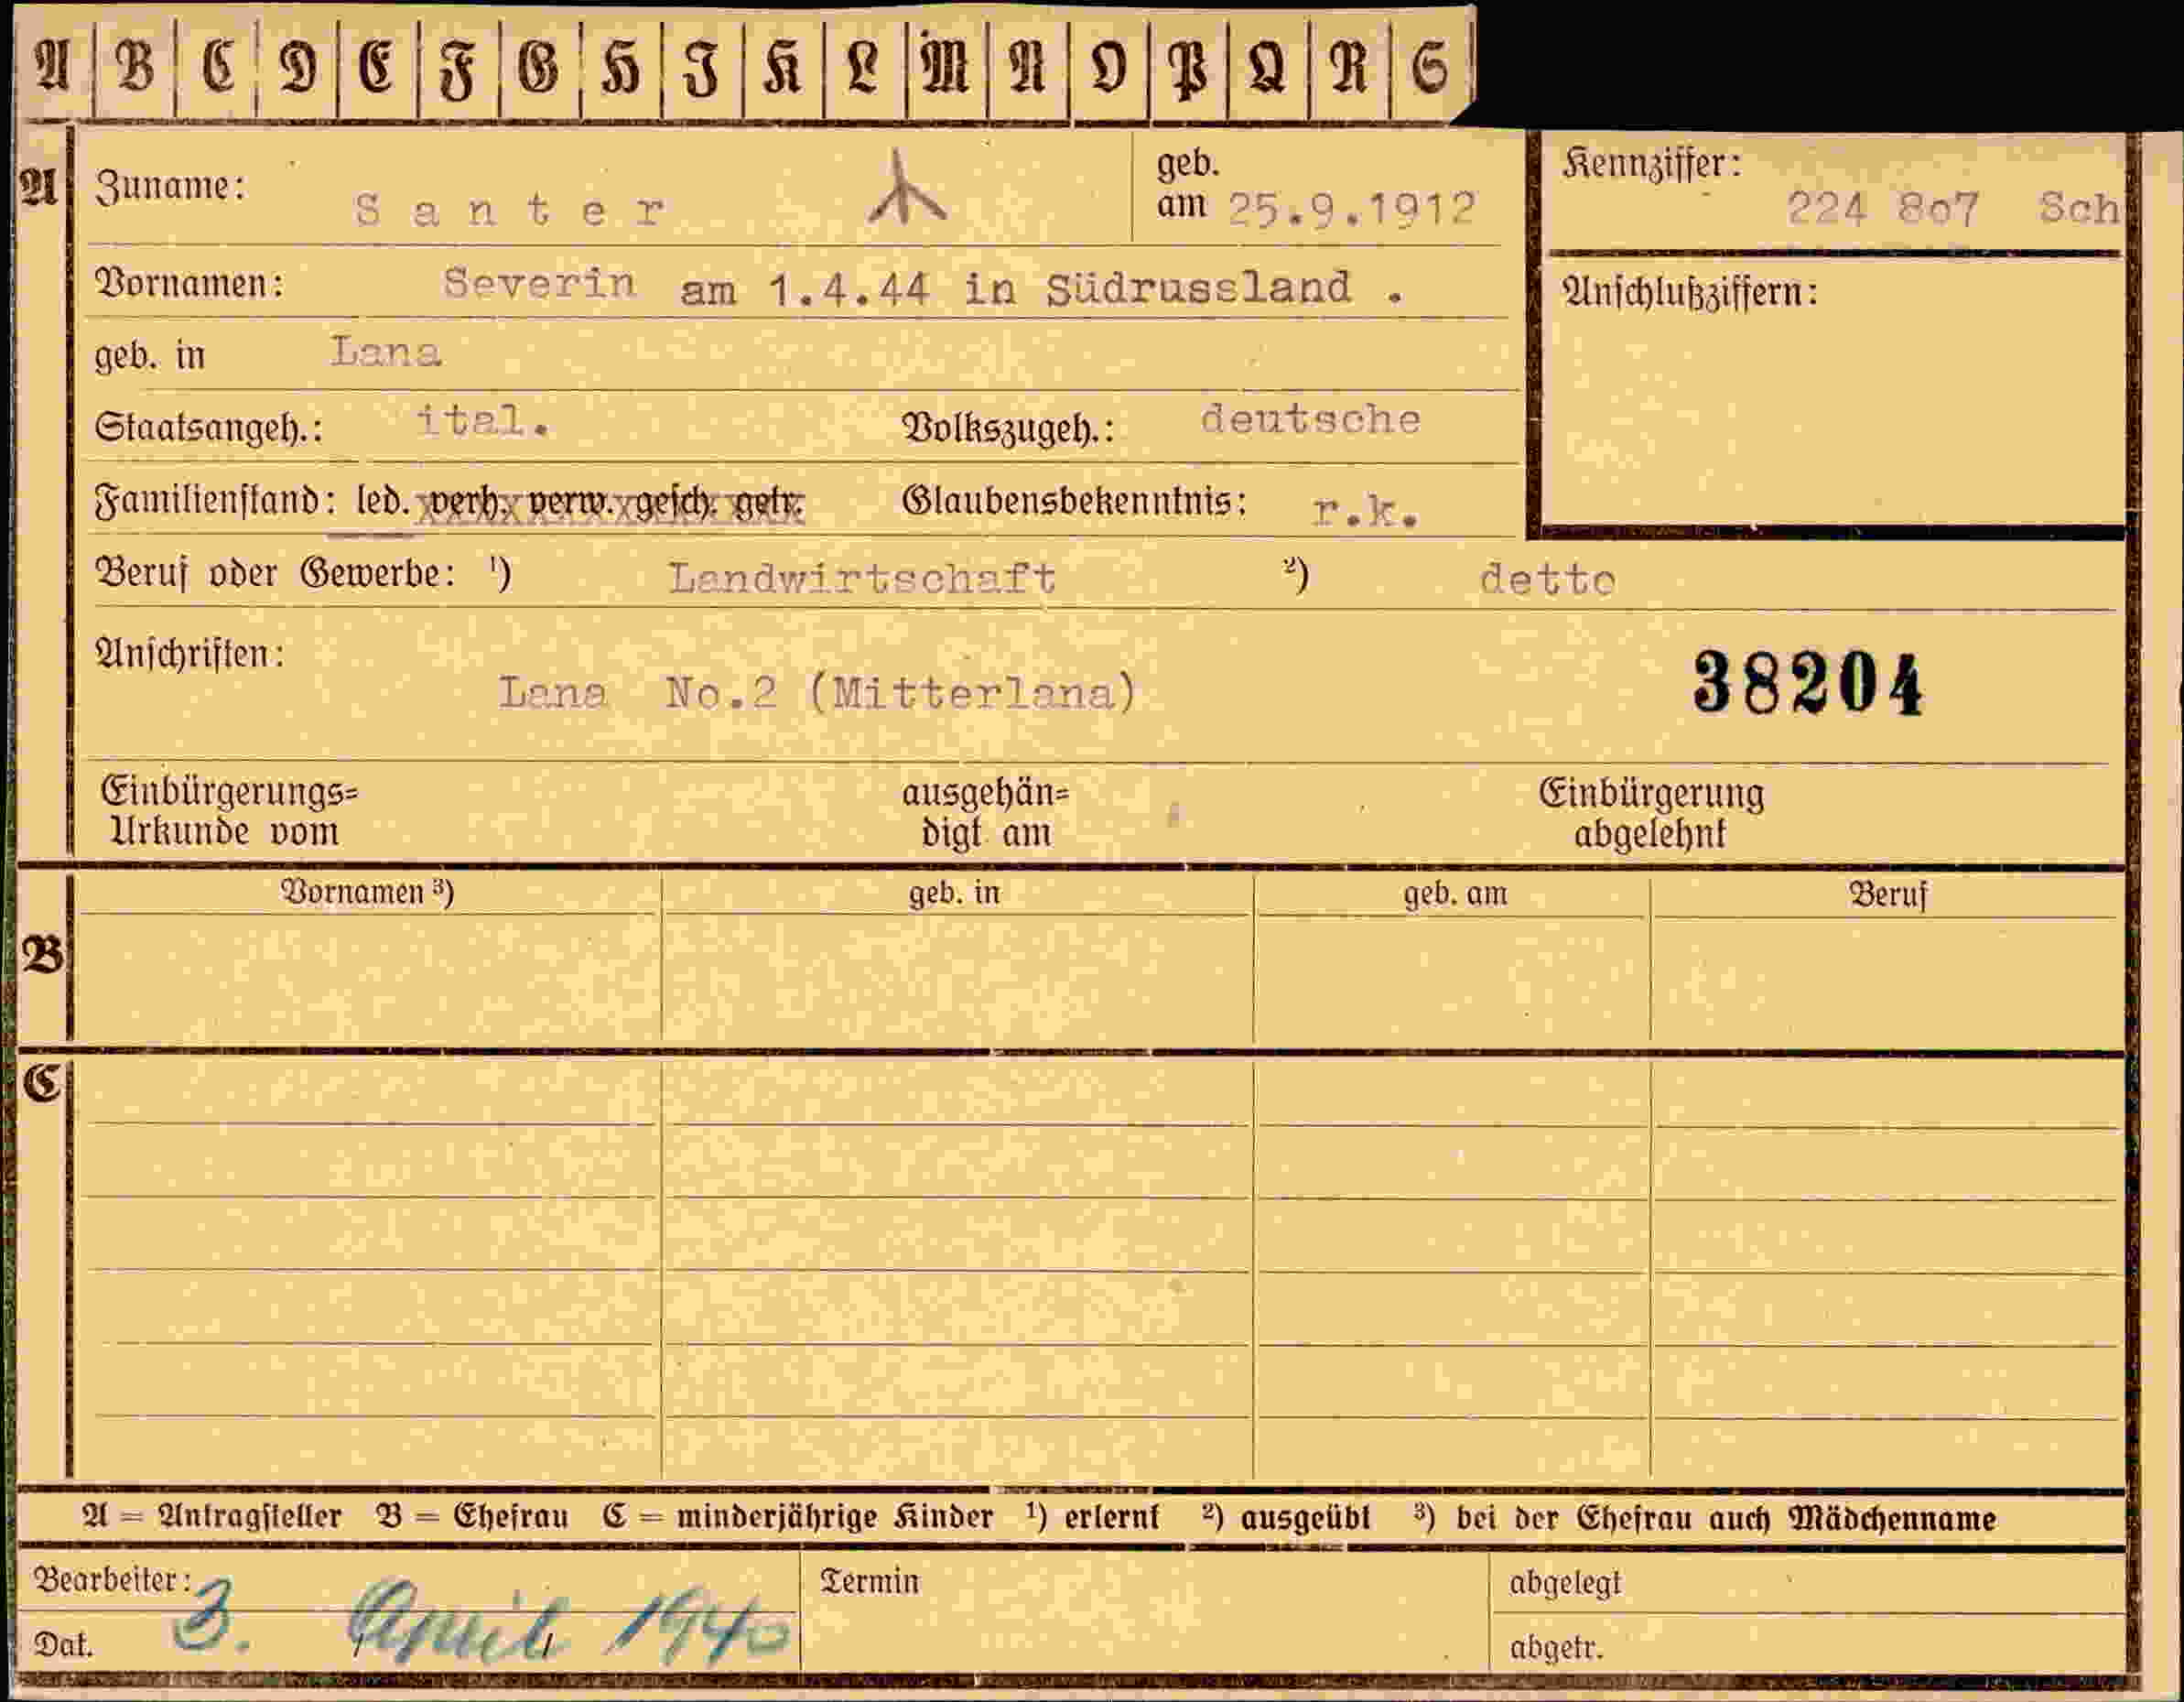 A B C D E F G H I K L M N O P Q R S
A Zuname: Santer geb. am 25.9.1912 Kennziffer: 224 807 Sch
Vornamen: Severin am 1.4.44 in Südrussland . Anschlußziffern:
geb. in Lana
Staatsangeh.: ital. Volkszugeh.: deutsche
Familienstand: led. verh. verw. gesch. getr. Glaubensbekenntnis: r.k.
Beruf oder Gewerbe: ¹) Landwirtschaft ²) detto
Anschriften:
Lana No.2 (Mitterlana) 38204
Einbürgerungs= ausgehän= Einbürgerung
Urkunde vom digt am abgelehnt
Vornamen ³) geb. in geb. am Beruf
B
C
A = Antragsteller B = Ehefrau C = minderjährige Kinder ¹) erlernt ²) ausgeübt ³) bei der Ehefrau auch Mädchenname
Bearbeiter: Termin abgelegt
Dat. 3. April 1940 abgetr.